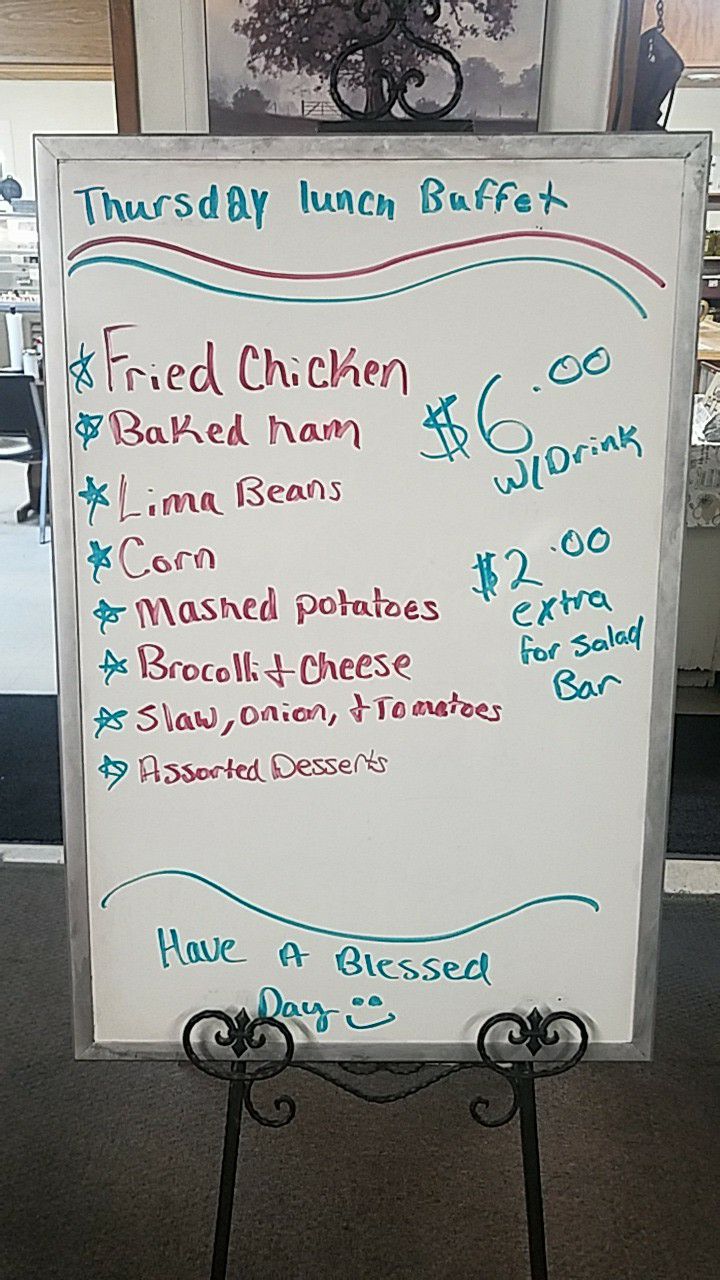 Thursday lunch Buffet
Fried Chicken
Baked ham
Lima Beans
Corn
Mashed potatoes
Brocolli + Cheese
Slaw, onion, + Tomatoes
Assorted Desserts
$6.00
w/Drink
$2.00
extra
for Salad
Bar
Have A Blessed
Day